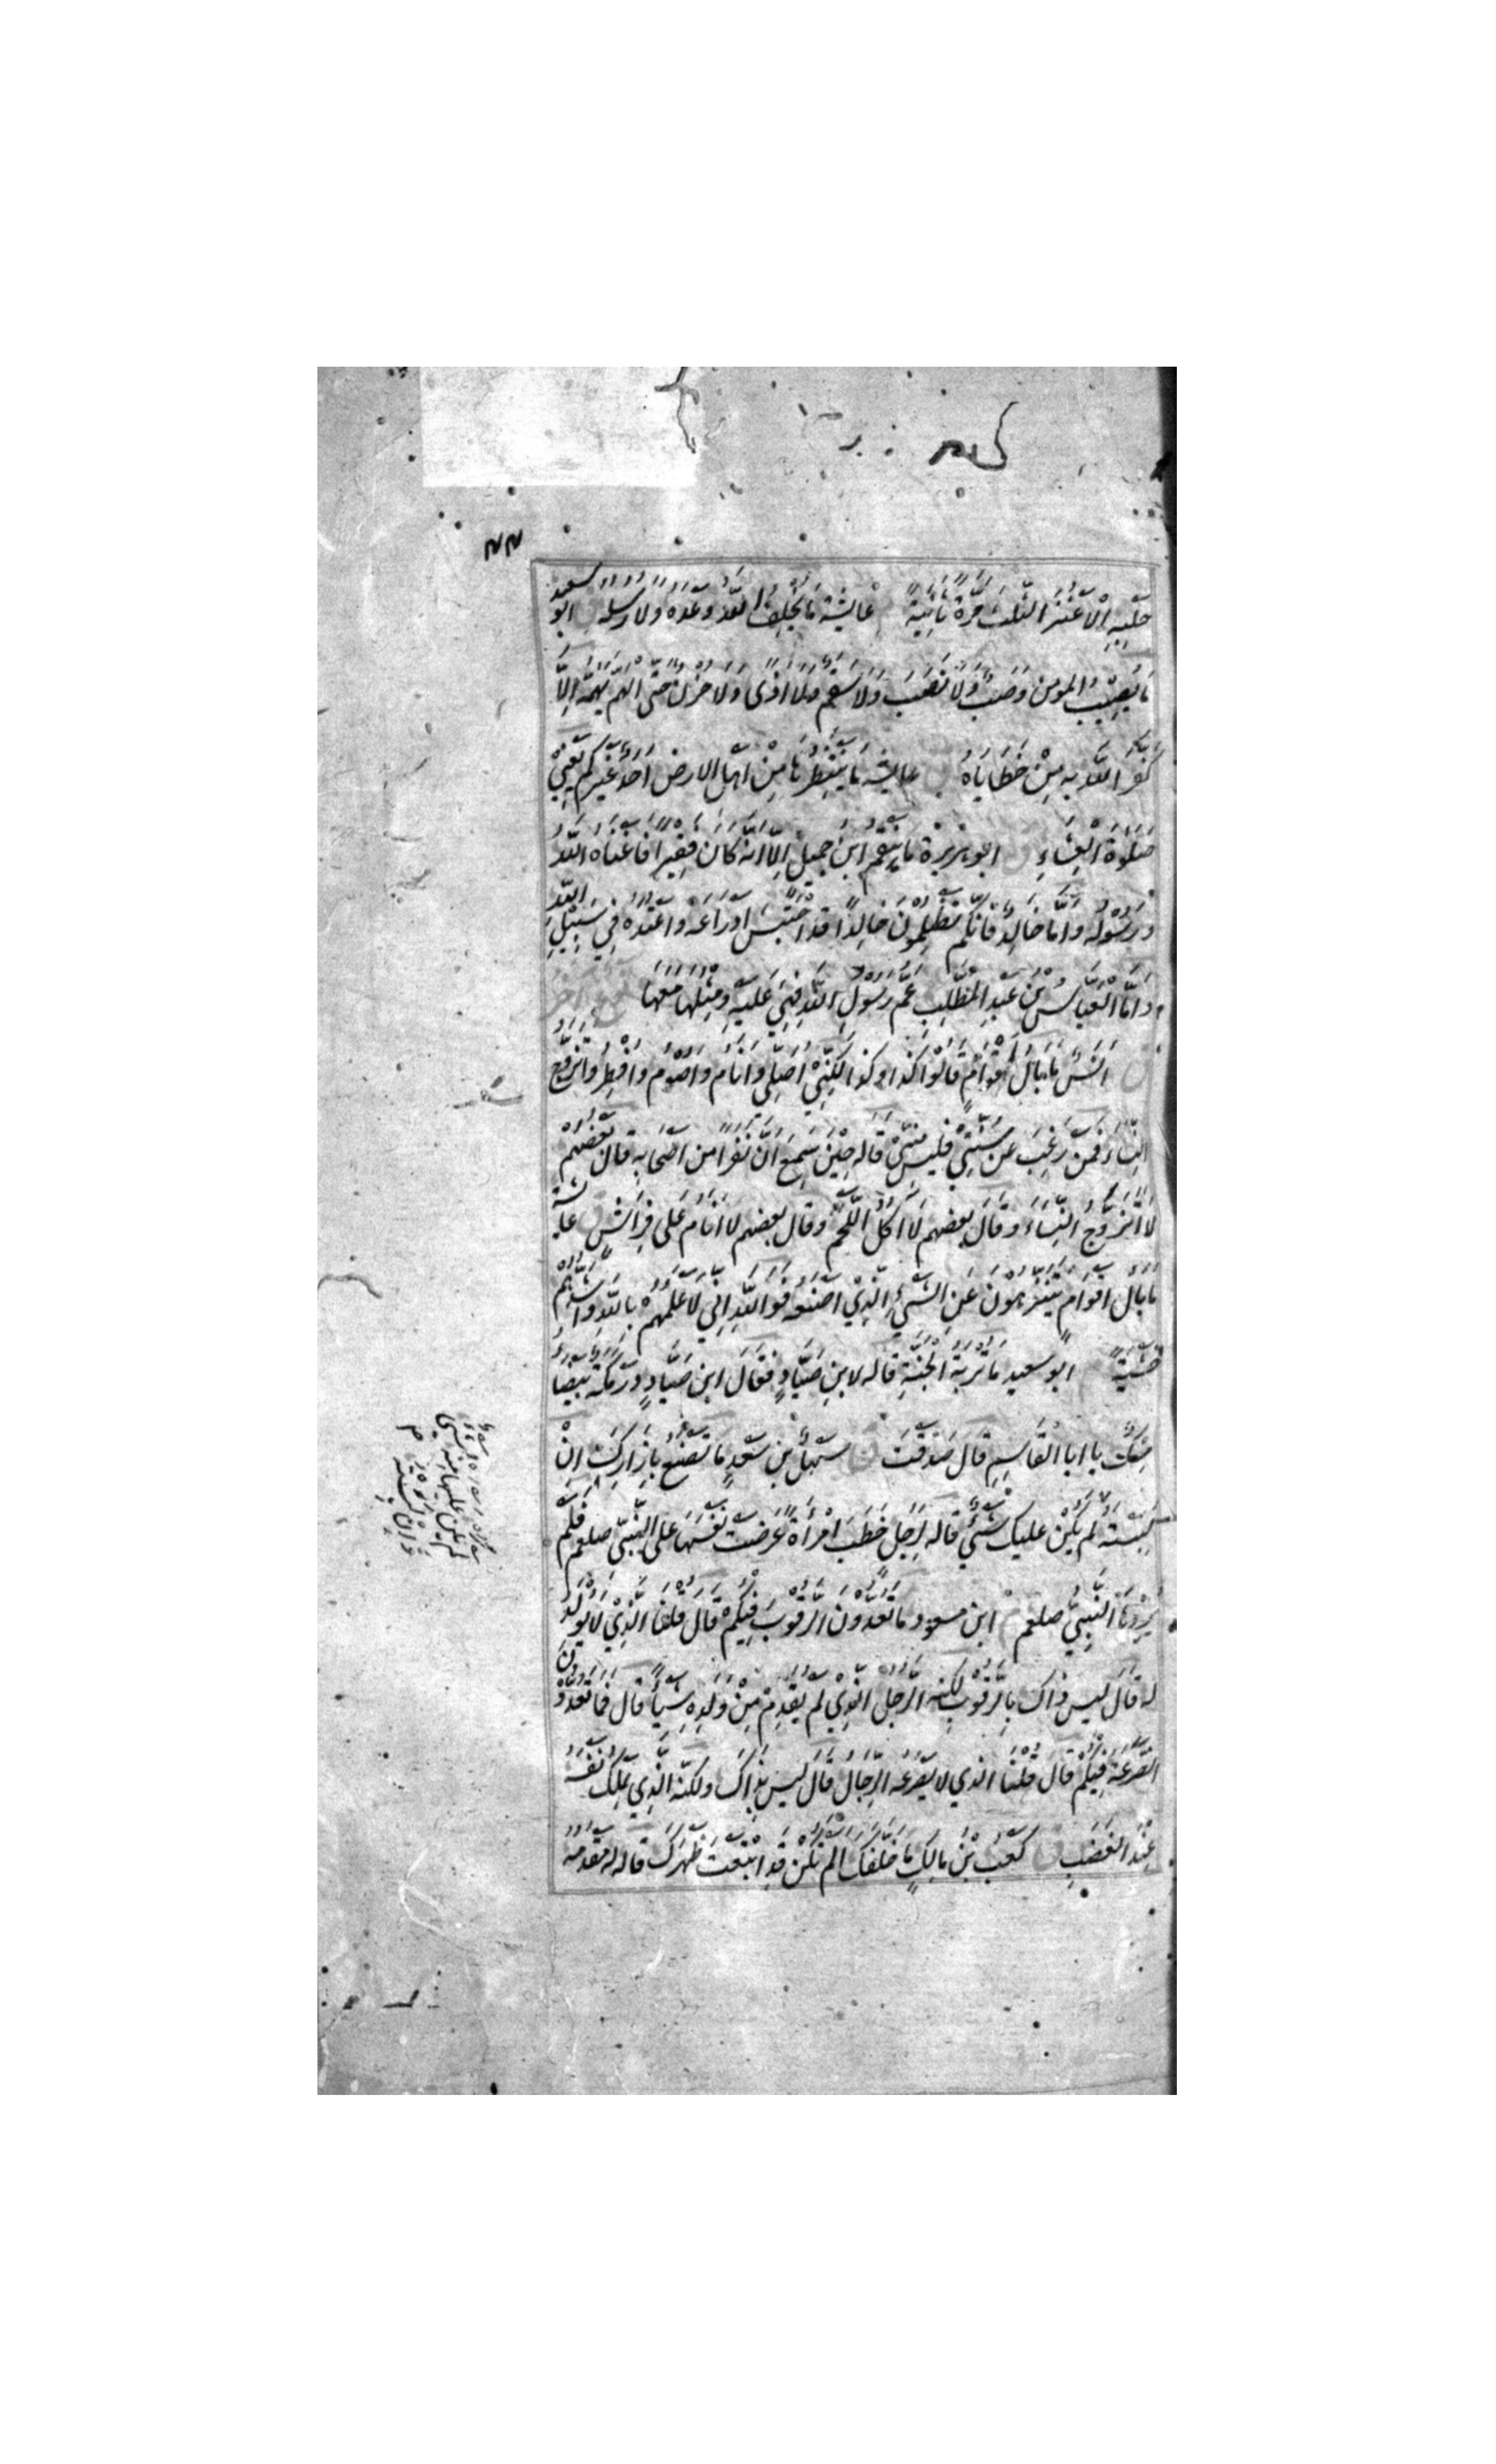 حَلْبِهِ اِلَّا عَنْزَ الثُّلُثَ مَرَّةً ثَانِيَةً عَايِشَةُ مَا يُخْلِفُ اللّٰهُ وَعْدَهُ وَلَا رُسُلُهُ ابو سعيد
مَا يُصِيْبُ المومنَ وَصَبٌ وَلَا نَصَبَ وَلَا سَقَمٍ ولا اذًى وَلَا حُزْنٍ حَتّى الهَمّ يُهِمُّهُ اِلَّا
كَفَّرَ اللّٰهُ بِهِ مِنْ خَطَايَاهُ عايشة مَا يَنْتَظِرُهَا مِنْ اهل الارض اَحَدٌ غَيْرُكُمْ يَعْنِيْ
صَلوٰةَ الْعِشَاءِ ابو هريرة مَا يَنْقِمُ ابْنُ جَمِيْلٍ اِلَّا اَنَّهُ كَانَ فَقِيْرًا فَاَغْنَاهُ اللّٰهُ
وَرَسُوْلُهُ وَاَمَّا خَالِدٌ فَاِنَّكُمْ تَظْلِمُوْنَ خَالِدًا قَدِ احْتَبَسَ اَدْرَاعَهُ وَاَعْتُدَهُ فِيْ سَبِيْلِ اللّٰهِ
وَاَمَّا الْعَبَّاسُ بْنُ عَبْدِ الْمُطَّلِبِ عَمُّ رَسُوْلِ اللّٰهِ فَهِيَ عَلَيْهِ وَمِثْلُهَا مَعَهَا
اَنَسٌ مَا بَالُ اَقْوَامٍ قَالُوْا كَذَا وَكَذَا لٰكِنِّيْ اُصَلِّيْ وَاَنَامُ وَاَصُوْمُ وَاُفْطِرُ وَاَتَزَوَّجُ
النِّسَاءَ فَمَنْ رَغِبَ عَنْ سُنَّتِيْ فَلَيْسَ مِنِّيْ قاله حِيْنَ سَمِعَ اَنَّ نَفَرًا مِنْ اَصْحَابِهِ قَالَ بَعْضُهُمْ
لَا اَتَزَوَّجُ النِّسَاءَ وَقَالَ بعضهم لَا اٰكُلُ اللَّحْمَ وقال بعضهم لَا اَنَامُ عَلَى فِرَاشٍ عايشة
مَا بَالُ اَقْوَامٍ يَتَنَزَّهُوْنَ عَنِ الشَّيْءِ الَّذِيْ اَصْنَعُهُ فَوَاللّٰهِ اِنِّيْ لَاَعْلَمُهُمْ بِاللّٰهِ وَاَشَدُّهُمْ
خَشْيَةً ابو سعيد مَا تُرْبَةُ الْجَنَّةِ قاله لابن صَيَّادٍ فَقَالَ ابن صَيَّادٍ دَرْمَكَةٌ بَيْضَاءُ
مِسْكٌ يا ابا الْقَاسِمِ قَالَ صَدَقْتَ سَهْلُ بن سَعْدٍ مَا تَصْنَعُ بِاِزَارِكَ اِنْ
لَبِسَتْهُ لَمْ يَكُنْ عليك شَيْءٌ قاله لِرَجُلٍ خَطَبَ امْرَأَةً عَرَضَتْ نَفْسَهَا عَلَى النَّبِيِّ صلعم فَلَمْ
يُرِدْهَا النَّبِيُّ صلعم ابن مسعود مَا تَعُدُّوْنَ الرَّقُوْبَ فِيْكُمْ قَالَ قُلْنَا الَّذِيْ لَا يُوْلَدُ
له قَالَ ليس ذاك بِالرَّقُوْبِ لٰكِنَّهُ الرَّجُلُ الَّذِيْ لَمْ يُقَدِّمْ مِنْ وَلَدِهِ شَيْئًا قال فَمَا تَعُدُّوْنَ
الصُّرَعَةَ فِيْكُمْ قال قُلْنَا الذي لا يَصْرَعُهُ الرِّجَالُ قَالَ لَيس بِذَاكَ ولكنّه الَّذِي يَمْلِكُ نَفْسَهُ
عِنْدَ الغَضَبِ كَعْبُ بْنُ مَالِكٍ مَا خَلَّفَكَ اَلَمْ تَكُنْ قَدِ ابْتَعْتَ ظَهْرَكَ قاله له مَقْدَمَهُ
لم يكن عليها منه شي
وان لبسته